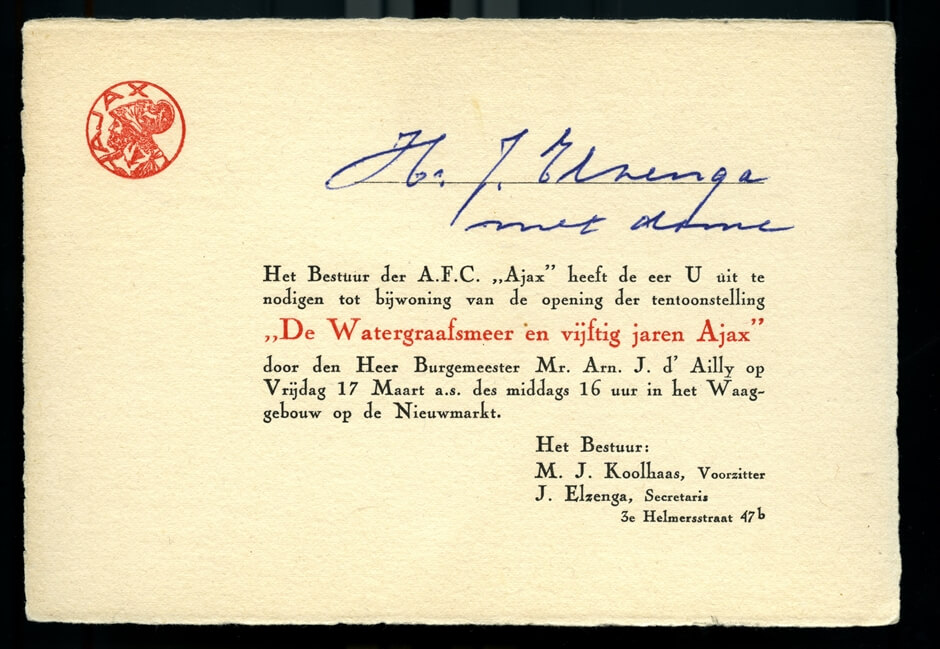 AJAX
Hr. J. Elzenga
met dame
Het Bestuur der A.F.C. „Ajax” heeft de eer U uit te
nodigen tot bijwoning van de opening der tentoonstelling
„De Watergraafsmeer en vijftig jaren Ajax”
door den Heer Burgemeester Mr. Arn. J. d' Ailly op
Vrijdag 17 Maart a.s. des middags 16 uur in het Waag-
gebouw op de Nieuwmarkt.
Het Bestuur:
M. J. Koolhaas, Voorzitter
J. Elzenga, Secretaris
3e Helmersstraat 47b